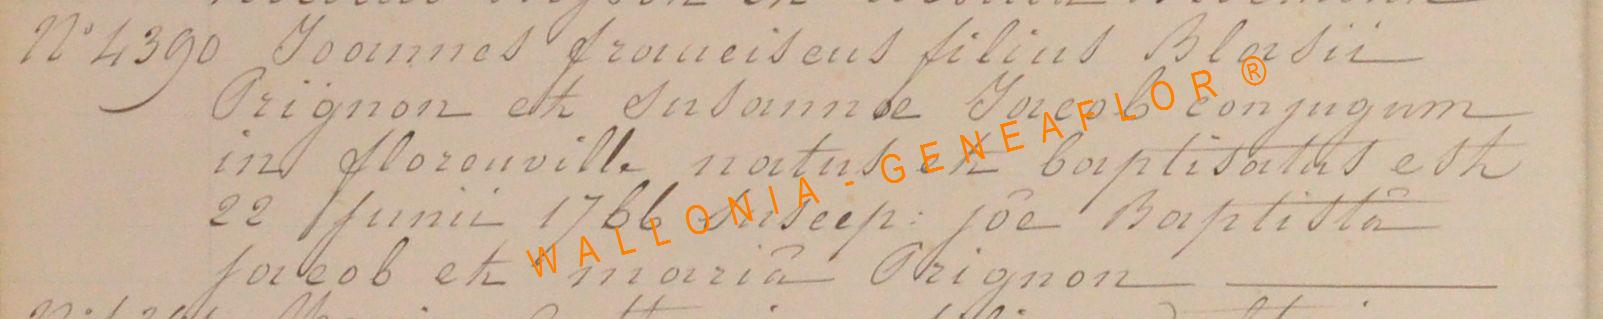 N° 4390 Joannes franciscus filius Blasii
Prignon et Susannæ Jacob conjugum
in florenville natus et baptisatus est
22 Junii 1766 suscep: jôe Baptistâ
Jacob et mariâ Prignon
WALLONIA - GENEAFLOR ®